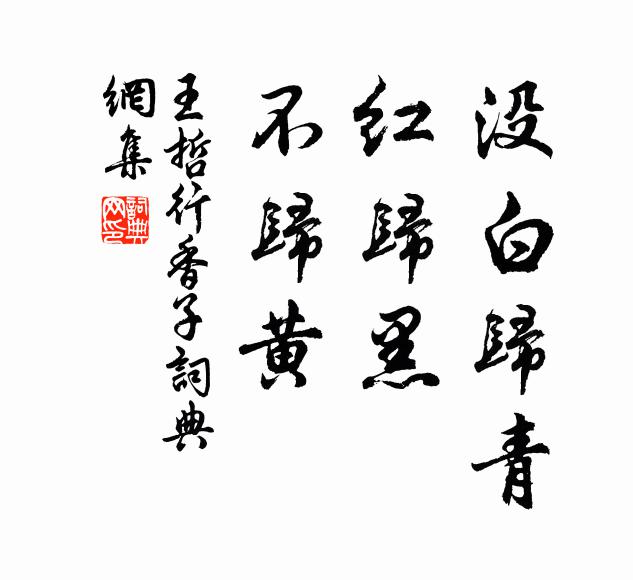 没白歸青
红歸黑
不歸黄
王哲行香子詞典
網集
詞典
网印